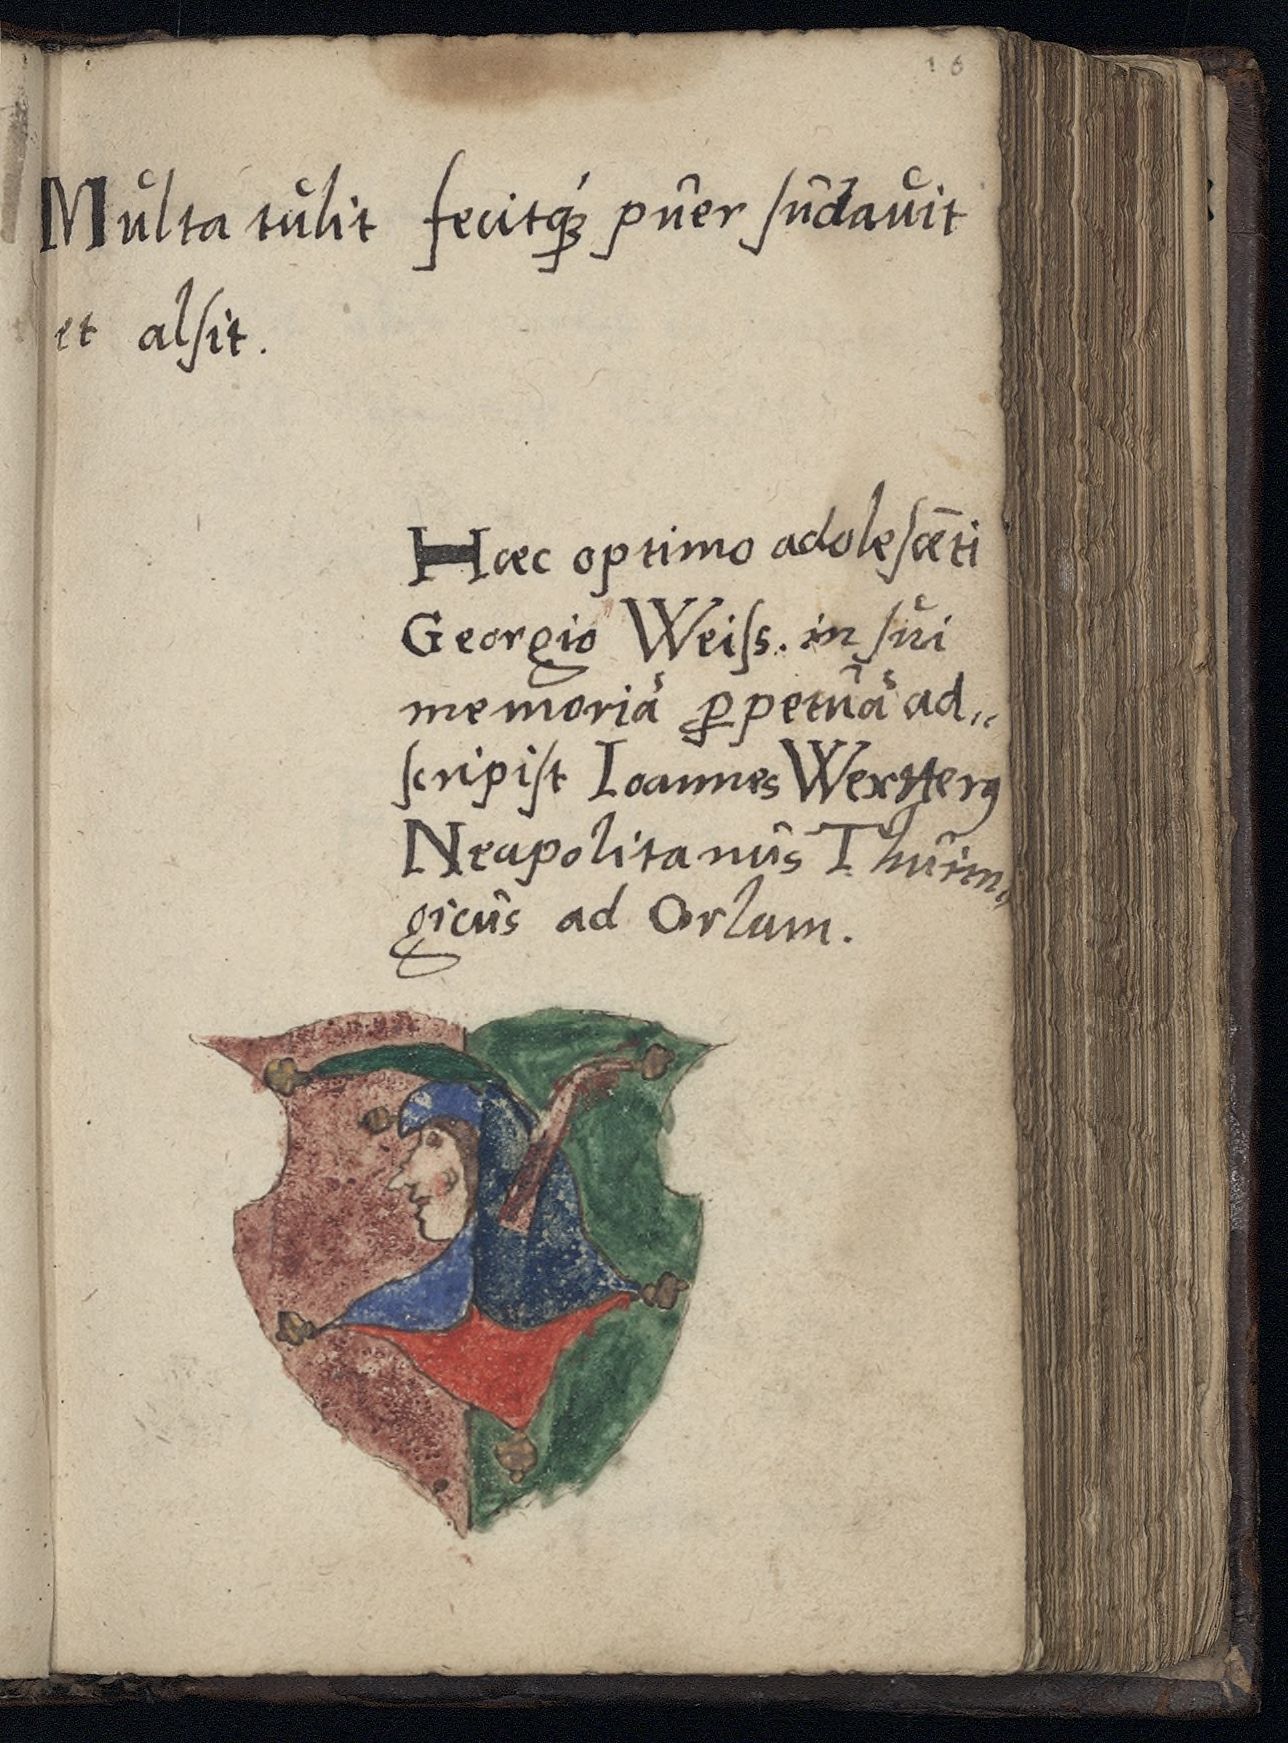 16
Multa tulit fecitqꝫ puer sudauit
et alsit.
Hæc optimo adolescẽti
Georgio Weiſs. in ſui
memoriã ꝑpetuã ad„
ſcripſit Ioannes
Neapolitanus Thurin
gicus ad Orlam.